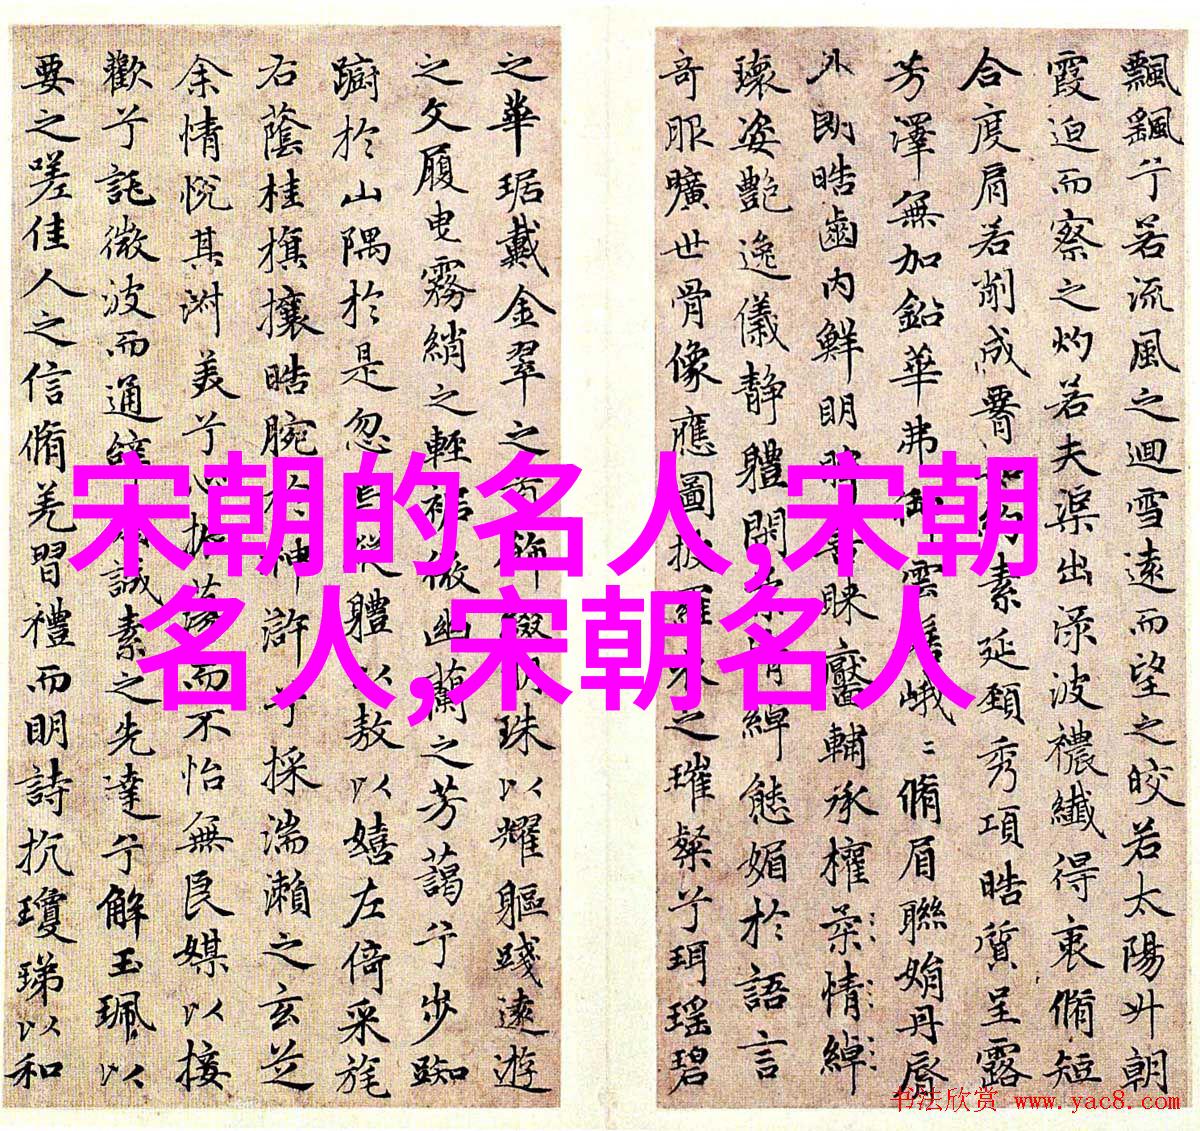 飄飖兮若流風之迴雪遠而望之皎若太陽升朝
霞迫而察之灼若夫渠出淥波襛纖得衷脩短
合度肩若削成素延頸秀項皓質呈露
芳澤無加鉛華弗御雲髻峨〻脩眉聯娟丹脣
外朗皓齒內鮮明眸善睞靨輔承權柔情綽
瓌姿艷逸儀靜體閑情綽態媚於語言
奇服曠世骨像應圖披羅衣之璀粲兮珥瑤碧
之華琚戴金翠之首飾綴明珠以耀軀踐遠遊
之文履曳霧綃之輕裾微幽蘭之芳藹兮步踟
躕於山隅於是忽體以敖以嬉左倚采旄
右蔭桂旗攘皓腕於神滸兮採湍瀨之玄芝
余情悅其淑美兮心振蕩而不怡無良媒以接
歡兮託微波而通辭誠素之先達兮解玉珮以
要之嗟佳人之信脩羌習禮而明詩抗瓊珶以和
宋朝的名人,宋朝
名人,宋朝名人
书法欣赏 www.yac8.com